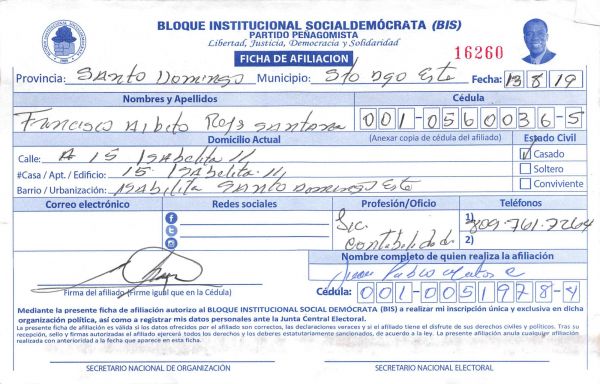 BLOQUE INSTITUCIONAL SOCIALDEMÓCRATA (BIS)
PARTIDO PEÑAGOMISTA
Libertad, Justicia, Democracia y Solidaridad
FICHA DE AFILIACION
16260
Provincia: Santo Domingo Municipio: Sto Dgo Este Fecha: 13 8 19
Nombres y Apellidos Cédula
Francisco Albeto Rojs Santana 001-0560036-5
Domicilio Actual (Anexar copia de cédula del afiliado) Estado Civil
Calle: A 15 Isabelita 11 Casado
#Casa / Apt. / Edificio: 15 Isabelita 11, Soltero
Barrio / Urbanización: Isabelita Santo Domingo Este Conviviente
Correo electrónico Redes sociales Profesión/Oficio Teléfonos
Lic. Contabilidad
1) 809-761-7264
2)
Nombre completo de quien realiza la afiliación
Juan Pablo
Firma del afiliado (Firme igual que en la Cédula)
Cédula: 001-0051978-4
Mediante la presente ficha de afiliación autorizo al BLOQUE INSTITUCIONAL SOCIAL DEMÓCRATA (BIS) a realizar mi inscripción única y exclusiva en dicha
organización política, así como a registrar mis datos personales ante la Junta Central Electoral.
La presente ficha de afiliación es válida si los datos ofrecidos por el afiliado son correctos, las declaraciones veraces y si el afiliado tiene el disfrute de sus derechos civiles y políticos. Tras su
recepción, sello y firmas autorizadas el afiliado ejercerá todos los derechos y los deberes estatutariamente sancionados, de acuerdo a la ley. La presente afiliación anula cualquier afiliación
realizada con anterioridad a la fecha que aparece en esta ficha.
SECRETARIO NACIONAL DE ORGANIZACIÓN SECRETARIO NACIONAL ELECTORAL